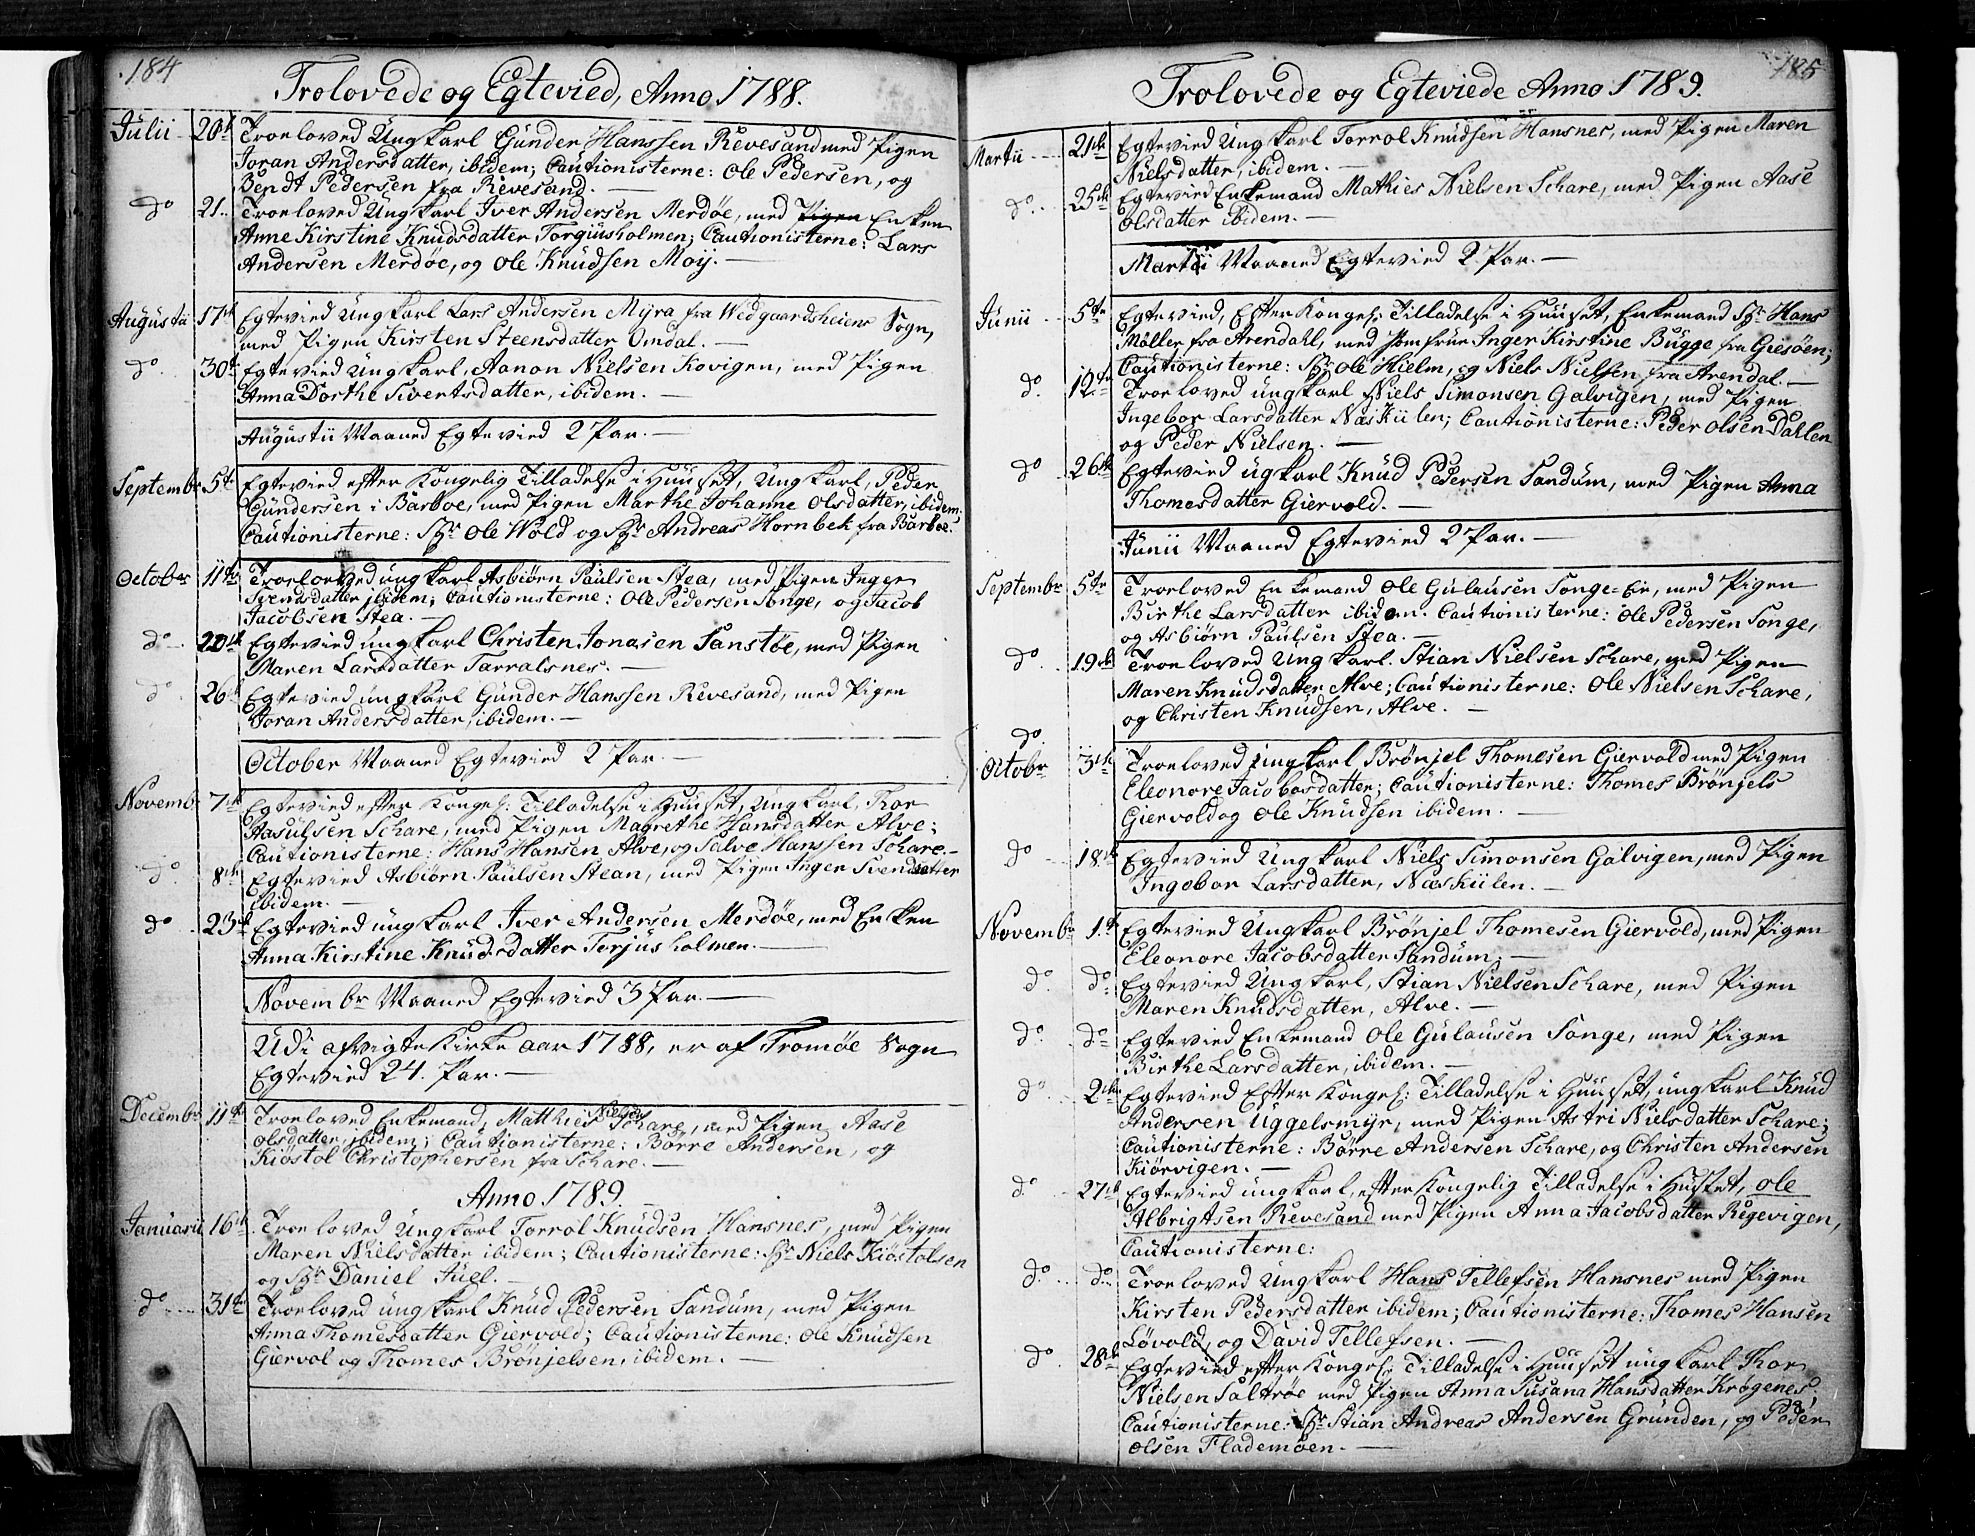 184
Trolovede og Egtevied, Anno 1788.
Julii 20de Troeloved Ung Karl Gunder Hanssen Revesand med Pigen
Joran Andersdatter, ibidem; Cautionisterne: Ole Pedersen, og
Bendt Pedersen fra Revesand. —
do 21. Troeloved Ung Karl Iver Andersen Merdøe, med Pigen Enken
Anne Kirstine Knudsdatter Torgiusholmen; Cautionisterne: Lars
Andersen Merdøe, og Ole Knudsen Moij. —
Augustii 17de Egtevied Ung Karl Lars Andersen Myra fra Wedgaardsheiens Sogn,
med Pigen Kirsten Steensdatter Omdal. —
do. 30te Egtevied Ung Karl, Aanon Nielsen Kovigen, med Pigen
Anna Dorthe Sivertsdatter, ibidem. —
Augustii Maaned Egtevied 2 Par. —
Septembr 5te Egtevied efter Kongelig Tilladelse i Huuset, Ung Karl, Peder
Gundersen i Barboe, med Pigen Marthe Johanne Olsdatter, ibidem.
Cautionisterne: Sr Ole Wold og Sr Andreas Hornbek fra Barboe.
October 11te Troeloved ung Karl Asbiørn Paulsen Stea, med Pigen Inger
Svendsdatter ibidem; Cautionisterne: Ole Pedersen Songe, og Jacob
Jacobsen Stea. —
do 20de Egtevied ung Karl Christen Jonasen Sanstøe, med Pigen
Maren Larsdatter Sarralsnes. —
do. 26de Egtevied ung Karl Gunder Hanssen Revesand, med Pigen
Joran Andersdatter, ibidem. —
October Maaned Egtevied 2 Par. —
Novembr 7de Egtevied efter Kongel: Tilladelse i Huuset, Ung Karl, Thor
Aasulsen Schare, med Pigen Magrethe Hansdatter Alve;
Cautionisterne: Hans Hansen Alve, og Salve Hanssen Schare. —
do. 8de Egtevied Asbiørn Paulsen Stean, med Pigen Inger Svendsdatter
ibidem. —
do 23de Egtevied ung Karl Iver Andersen Merdøe, med Enken
Anna Kirstine Knudsdatter Torjusholmen. —
Novembr Maaned Egtevied 3 Par. —
Udi afvigte Kirke aar 1788, er af Tromøe Sogn
Egtevied 24. Par. —
Decembr 11te Troeloved Enkemand, Matthies Nielsen Schare, med Pigen Aase
Olsdatter, ibidem; Cautionisterne: Børre Andersen, og
Kiøstol Christophersen fra Schare. —
Anno 1789. —
Januarii 16de Troeloved Ung Karl Torrol Knudsen Hansnes, med Pigen
Maren Nielsdatter ibidem; Cautionisterne: Sr Niels Kiøstolsen
og Sr Daniel Juel. —
do 31te Troeloved ung Karl Knud Pedersen Sandum, med Pigen
Anna Thomesdatter Giervold; Cautionisterne: Ole Knudsen
Giervol og Thomes Brønjelsen, ibidem. —
185
Trolovede og Egteviede Anno 1789.
Martii 21de Egtevied Ung Karl Torrol Knudsen Hansnes, med Pigen Maren
Nielsdatter, ibidem. —
do. 25de Egtevied Enkemand Mathies Nielsen Schare, med Pigen Aase
Olsdatter ibidem. —
Martii Maaned Egtevied 2 Par. —
Junii 5te Egtevied, Efter Kongel: Tilladelse i Huuset, Enkemand Sr Hans
Møller fra Arendahl, med Jomfrue Inger Kirstine Bugge fra Giesøen;
Cautionisterne: Sr Ole Hielm, og Niels Nielsen fra Arendal. —
do. 12te Troeloved ung Karl Niels Simonsen Galvigen, med Pigen
Ingebor Larsdatter Næskiilen; Cautionisterne: Peder Olsen Dahlen
og Peder Nielsen. —
do 26de Egtevied ug Karl Knud Pedersen Sandum, med Pigen Anna
Thomesdatter Giervold. —
Junii Maaned Egtevied 2 Par. —
Septembr 5te Troeloved Enkemand Ole Gulausen Songe-Eie, med Pigen
Birthe Larsdatter ibidem. Cautionisterne: Ole Pedersen Songe,
og Asbiørn Paulsen Stea. —
do 19de Troeloved Ung Karl. Stian Nielsen Schare, med Pigen
Maren Knudsdatter Alve; Cautionisterne: Ole Nielsen Schare,
og Christen Knudsen, Alve. —
do
Octobr 3de Troeloved ung Karl Brønjel Thomesen Giervold med Pigen
Eleonore Jacobsdatter; Cautionisterne: Thomes Brønjels
Giervold og Ole Knudsen ibidem. —
do 18de Egtevied Ung Karl Niels Simonsen Galvigen, med Pigen
Ingebor Larsdatter, Næskiilen. —
Novembr 1te Egtevied Ung Karl Brønjel Thomesen Giervold, med Pigen
Eleonore Jacobsdatter Sandum. —
do. do Egtevied Ung Karl, Stian Nielsen Schare, med Pigen
Maren Knudsdatter, Alve. —
do. do Egtevied Enkemand Ole Gulausen Songe, med Pigen
Birthe Larsdatter, ibidem. —
do 2de Egtevied Efter Kongel: Tilladelse i Huuset, ung Karl Knud
Andersen Uggelsmyr, med Pigen Astri Nielsdatter Schare;
Cautionisterne: Børre Andersen Schare, og Christen Andersen
Kiørvigen. —
do. 27de Egtevied ung Karl, efter Kongelig Tilladelse i Huset, Ole
Albrigtsen Revesand med Pigen Anna Jacobsdatter Regevigen,
Cautionisterne:
do. do. Troeloved Ung Karl Hans Tellefsen Hansnes med Pigen
Kirsten Pedersdatter ibidem; Cautionisterne: Thomes Hansen
Løvold, og David Tellefsen. —
do. 28de Egtevied efter Kongel: Tilladelse i Huuset ung Karl Thor
Nielsen Saltrøe med Pigen Anna Susana Hansdatter Krøgenes
Cautionisterne: Sr Stian Andreas Andersen Grunden, og Peder
Olsen Flademoen. —